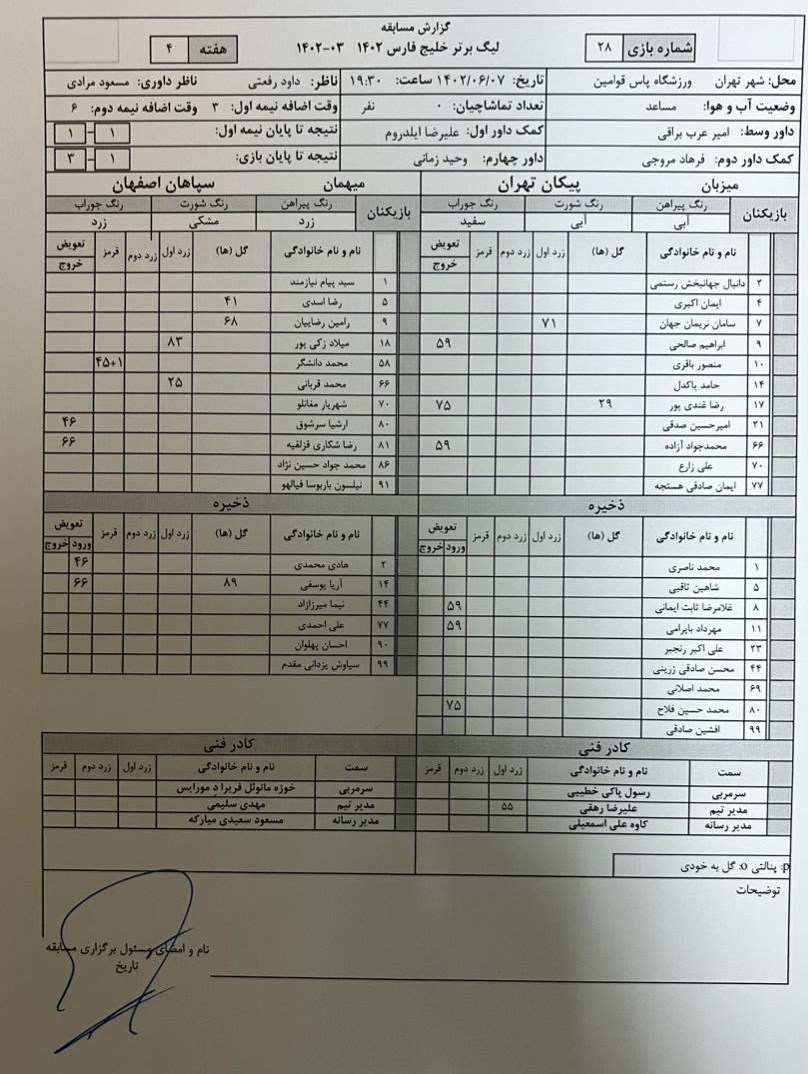 گزارش مسابقه
لیگ برتر خلیج فارس ۱۴۰۲ ۰۳-۱۴۰۲
شماره بازی ۲۸
هفته ۴
محل: شهر تهران ورزشگاه پاس قوامین تاریخ: ۱۴۰۲/۰۶/۰۷ ساعت: ۱۹:۳۰ ناظر: داود رفعتی ناظر داوری: مسعود مرادی
وضعیت آب و هوا: مساعد تعداد تماشاچیان: ۰ نفر وقت اضافه نیمه اول: ۳ وقت اضافه نیمه دوم: ۶
داور وسط: امیر عرب براقی کمک داور اول: علیرضا ایلدروم نتیجه تا پایان نیمه اول: ۱ - ۱
کمک داور دوم: فرهاد مروجی داور چهارم: وحید زمانی نتیجه تا پایان بازی: ۱ - ۳
میزبان پیکان تهران
بازیکنان رنگ پیراهن رنگ شورت رنگ جوراب
آبی آبی سفید
نام و نام خانوادگی گل (ها) زرد اول زرد دوم قرمز تعویض
خروج
۲ دانیال جهانبخش رستمی
۴ ایمان اکبری
۷ سامان نریمان جهان ۷۱
۹ ابراهیم صالحی ۵۹
۱۰ منصور باقری
۱۴ حامد پاکدل
۱۷ رضا غندی پور ۲۹ ۷۵
۲۱ امیرحسین صدقی
۶۶ محمدجواد آزاده ۵۹
۷۰ علی زارع
۷۷ ایمان صادقی هستجه
ذخیره
نام و نام خانوادگی گل (ها) زرد اول زرد دوم قرمز تعویض
ورود خروج
۱ محمد ناصری
۵ شاهین ثاقبی
۸ غلامرضا ثابت ایمانی ۵۹
۱۱ مهرداد بایرامی ۵۹
۲۳ علی اکبر رنجبر
۴۴ محسن صادقی زرینی
۶۹ محمد اصلانی
۸۰ محمد حسین فلاح ۷۵
۹۹ افشین صادقی
کادر فنی
سمت نام و نام خانوادگی زرد اول زرد دوم قرمز
سرمربی رسول پاکی خطیبی
مدیر تیم علیرضا رهقی ۵۵
مدیر رسانه کاوه علی اسمعیلی
میهمان سپاهان اصفهان
بازیکنان رنگ پیراهن رنگ شورت رنگ جوراب
زرد مشکی زرد
نام و نام خانوادگی گل (ها) زرد اول زرد دوم قرمز تعویض
خروج
۱ سید پیام نیازمند
۵ رضا اسدی ۴۱
۹ رامین رضاییان ۶۸
۱۸ میلاد زکی پور ۸۳
۵۸ محمد دانشگر ۴۵+۱
۶۶ محمد قربانی ۲۵
۷۰ شهریار مغانلو
۸۰ ارشیا سرشوق ۴۶
۸۱ رضا شکاری قزلقیه ۶۶
۸۶ محمد جواد حسین نژاد
۹۱ نیلسون باربوسا فیالهو
ذخیره
نام و نام خانوادگی گل (ها) زرد اول زرد دوم قرمز تعویض
ورود خروج
۲ هادی محمدی ۴۶
۱۴ آریا یوسفی ۸۹ ۶۶
۴۴ نیما میرزازاد
۷۷ علی احمدی
۹۰ احسان پهلوان
۹۹ سیاوش یزدانی مقدم
کادر فنی
سمت نام و نام خانوادگی زرد اول زرد دوم قرمز
سرمربی خوزه مانوئل فریرا د مورایس
مدیر تیم مهدی سلیمی
مدیر رسانه مسعود سعیدی مبارکه
p: پنالتی o: گل به خودی
توضیحات
نام و امضای مسئول برگزاری مسابقه
تاریخ